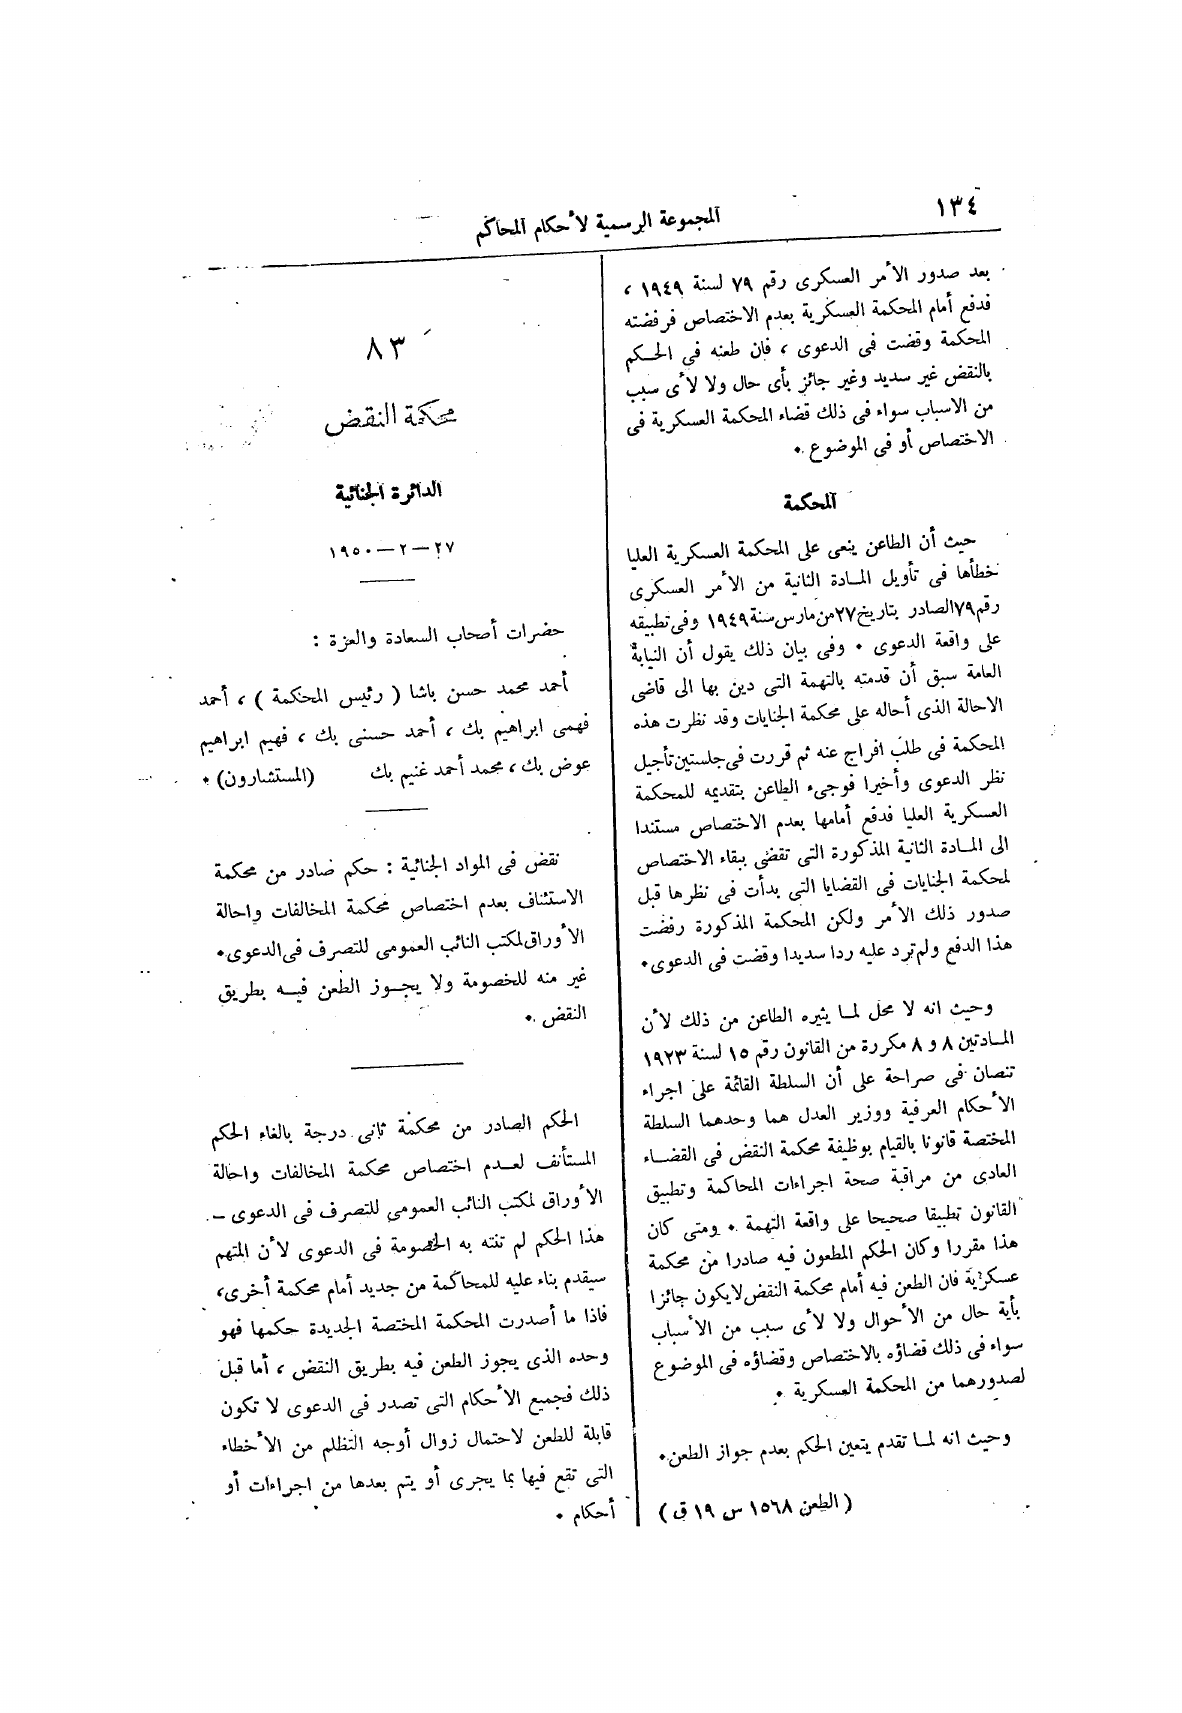 ١٣٤
المجموعة الرسمية لأحكام المحاكم
بعد صدور الأمر العسكرى رقم ٧٩ لسنة ١٩٤٩ ،
فدفع أمام المحكمة العسكرية بعدم الاختصاص فرفضته
المحكمة وقضت فى الدعوى ، فان طعنه فى الحكم
بالنقض غير سديد وغير جائز بأى حال ولا لأى سبب
من الاسباب سواء فى ذلك قضاء المحكمة العسكرية فى
الاختصاص أو فى الموضوع .
المحكمة
حيث أن الطاعن ينعى على المحكمة العسكرية العليا
خطأها فى تأويل المادة الثانية من الأمر العسكرى
رقم ٧٩ الصادر بتاريخ ٢٧ من مارس سنة ١٩٤٩ وفى تطبيقه
على واقعة الدعوى . وفى بيان ذلك يقول أن النيابة
العامة سبق أن قدمته بالتهمة التى دين بها الى قاضى
الاحالة الذى أحاله على محكمة الجنايات وقد نظرت هذه
المحكمة فى طلب افراج عنه ثم قررت فى جلستين تأجيل
نظر الدعوى وأخيرا فوجىء الطاعن بتقديمه للمحكمة
العسكرية العليا فدفع أمامها بعدم الاختصاص مستندا
الى المادة الثانية المذكورة التى تقضى ببقاء الاختصاص
لمحكمة الجنايات فى القضايا التى بدأت فى نظرها قبل
صدور ذلك الأمر ولكن المحكمة المذكورة رفضت
هذا الدفع ولم ترد عليه ردا سديدا وقضت فى الدعوى .
وحيث انه لا محل لما يثيره الطاعن من ذلك لأن
المادتين ٨ و ٨ مكررة من القانون رقم ١٥ لسنة ١٩٢٣
تنصان فى صراحة على أن السلطة القائمة على اجراء
الأحكام العرفية ووزير العدل هما وحدهما السلطة
المختصة قانونا بالقيام بوظيفة محكمة النقض فى القضاء
العادى من مراقبة صحة اجراءات المحاكمة وتطبيق
القانون تطبيقا صحيحا على واقعة التهمة . ومتى كان
هذا مقررا وكان الحكم المطعون فيه صادرا من محكمة
عسكرية فان الطعن فيه أمام محكمة النقض لا يكون جائزا
بأية حال من الأحوال ولا لأى سبب من الأسباب
سواء فى ذلك قضاؤه بالاختصاص وقضاؤه فى الموضوع
لصدورهما من المحكمة العسكرية .
وحيث انه لما تقدم يتعين الحكم بعدم جواز الطعن .
( الطعن ١٥٦٨ س ١٩ ق )
٨٣
محكمة النقض
الدائرة الجنائية
٢٧ — ٢ — ١٩٥٠
حضرات أصحاب السعادة والعزة :
أحمد محمد حسن باشا ( رئيس المحكمة ) ، أحمد
فهمى ابراهيم بك ، أحمد حسنى بك ، فهيم ابراهيم
عوض بك ، محمد أحمد غنيم بك (المستشارون) .
نقض فى المواد الجنائية : حكم صادر من محكمة
الاستئناف بعدم اختصاص محكمة المخالفات واحالة
الأوراق لمكتب النائب العمومى للتصرف فى الدعوى .
غير منه للخصومة ولا يجوز الطعن فيه بطريق
النقض .
الحكم الصادر من محكمة ثانى درجة بالغاء الحكم
المستأنف لعدم اختصاص محكمة المخالفات واحالة
الأوراق لمكتب النائب العمومى للتصرف فى الدعوى —
هذا الحكم لم تنته به الخصومة فى الدعوى لأن المتهم
سيقدم بناء عليه للمحاكمة من جديد أمام محكمة أخرى ،
فاذا ما أصدرت المحكمة المختصة الجديدة حكمها فهو
وحده الذى يجوز الطعن فيه بطريق النقض ، أما قبل
ذلك فجميع الأحكام التى تصدر فى الدعوى لا تكون
قابلة للطعن لاحتمال زوال أوجه التظلم من الأخطاء
التى تقع فيها بما يجرى أو يتم بعدها من اجراءات أو
أحكام .